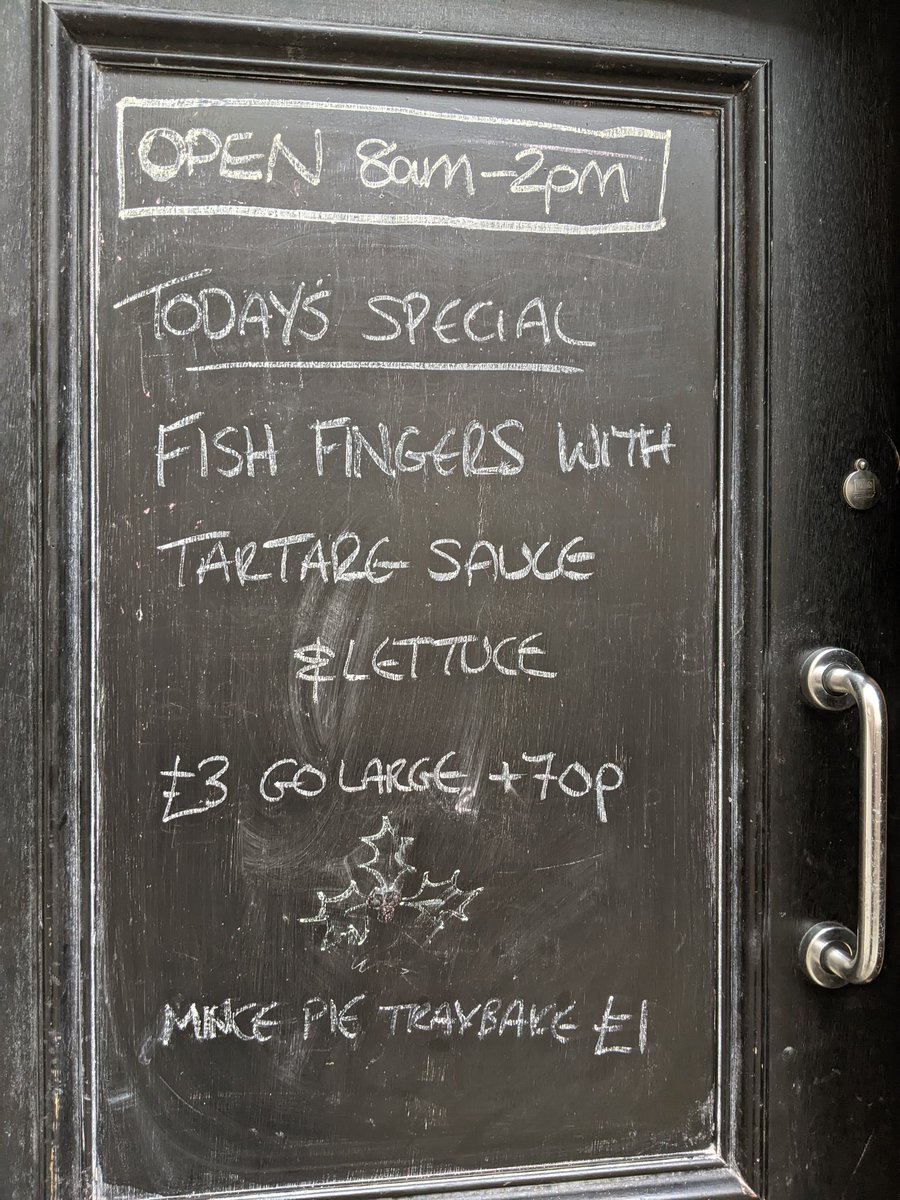 OPEN 8am-2pm
TODAY'S SPECIAL
FISH FINGERS WITH
TARTARE SAUCE
& LETTUCE
£3 GO LARGE +70p
MINCE PIE TRAYBAKE £1